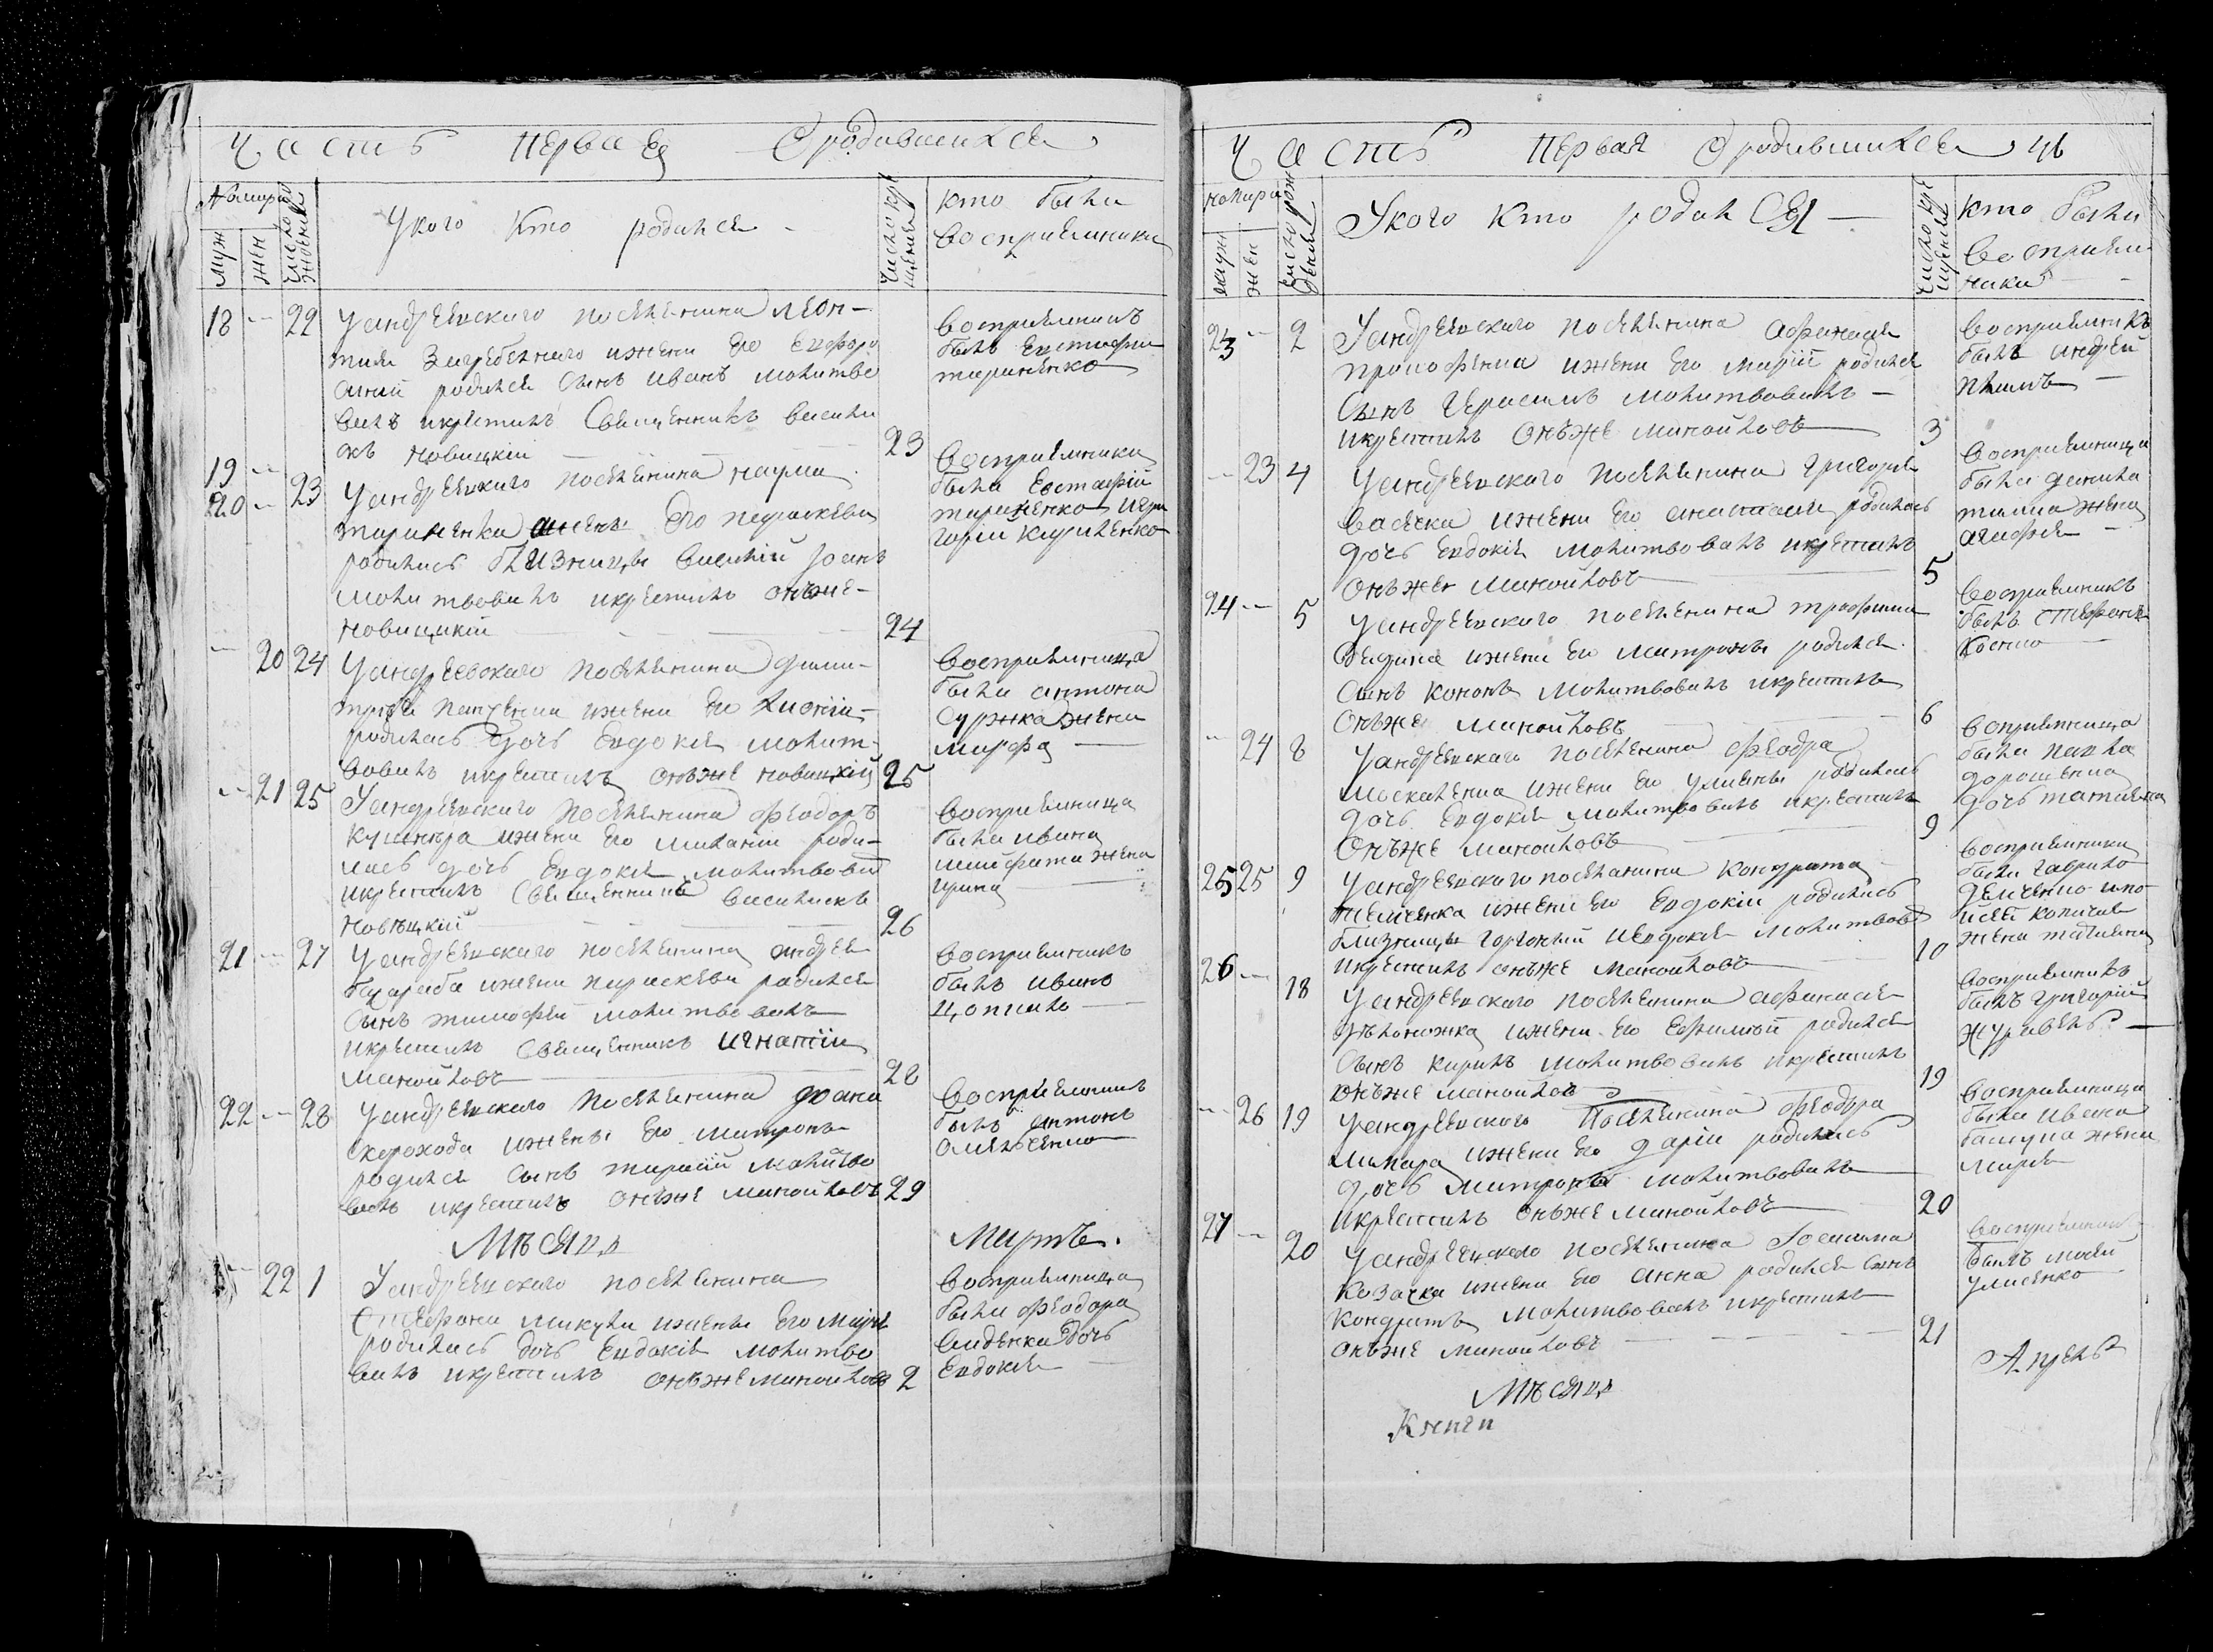 Часть первая О родившихся
Номира
муж
жен
Число рождения
Укого кто родился
Число крещения
кто были
восприемники
18 -- 22 Уандреевского поселенина леон-
тия Загребелного ижени его Евфро
синии родился сынъ иванъ молитво
валъ икрестилъ священникъ васили
скъ Новицкій 23
восприемникъ
былъ Евстафий
тараненко
19 --
20 -- 23 Уандреевского поселенина наума
тараненка ижены его параскеви
родились близницы василій Іоанъ
молитвовалъ икрестилъ онъже-
Новицкій 24
восприемники
были Евстафій
тараненко игри
горій кириленко
-- 20 24 Уандреевского поселенина дими-
трія панченка ижени его Ксенїи-
родилась дочь Евдокия молит-
вовалъ икрестилъ онъже Новицкій 25
восприемница
была антона
суржка жена
марфа
-- 21 25 Уандреевского поселенина феодоръ
кушнира ижени его миланїи роди-
лась дочь Евдокия молитвовал
икрестилъ священникъ василискъ
Новѣцкій 26
восприемница
была ивана
жена
ирина
21 -- 27 Уандреевского поселенина андрея
ижени параскеви родился
сынъ тимофей молитвовалъ
икрестилъ священникъ игнатїй
манойловъ 28
восприемникъ
былъ иванъ
цопило
22 -- 28 Уандреевского поселенина іоана
скорохода ижены его матроны
родился сынъ тарасїй молитво
валъ икрестилъ онъже манойловъ 29
восприемникъ
былъ антонъ
омельченко
Мѣсяцъ Мартъ.
-- 22 1 Уандреевского поселенина
стефана микулы ижены его марїи
родилась дочь Евдокія молитво
валъ икрестилъ онъже манойловъ 2
восприемница
была феодора
дочь
Евдокия
Часть первая О родившихся 46
номира
муж
жен
Число рождения
Укого кто родился
Число крещения
кто были
восприем
ники
23 -- 2 Уандреевского поселенина афанасия
прокофенка ижени его марїи родился
сынъ герасимъ молитвовалъ -
икрестилъ онъже манойловъ 3
восприемникъ
былъ андрей
-- 23 4 Уандреевского поселенина григория
васечка ижени его анастасии родилась
дочь евдокія молитвовалъ икрестилъ
онъже манойловъ 5
восприемница
была данила
жена
агафия
24 -- 5 Уандреевского поселенина трофима
ижени его матроны родился
сынъ кононъ молитвовалъ икрестилъ
онъже манойловъ 6
восприемникъ
былъ стефанъ
костю
-- 24 8 Уандреевского поселенина феодра
москаленка ижени его уляены родилась
дочь Евдокия молитвовалъ икрестилъ
онъже манойловъ 9
восприемница
была павла
дорошенка
дочь татияна
25 25 9 Уандреевского поселянина кондрата
ижени его Евдокїи родились
близницы горгоній иевдокия молитвовал
икрестилъ онъже манойловъ 10
восприемники
были гаврило
демченко ипо
жена татияна
26 -- 18 Уандреевского поселенина афанасия
бѣлоножка ижени его ефимїи родился
сынъ кирилъ молитвовалъ икрестилъ
онъже манойлов 19
восприемникъ
былъ григорій
журавель
-- 26 19 Уандреевского поселенина феодора
ижени его дарїи родилась
дочь матрона молитвовалъ
икрестилъ онъже манойловъ 20
восприемница
была ивана
башуна жена
мария
27 -- 20 Уандреевского поселенина
козачка ижени его анна родился сынъ
кондратъ молитвовалъ икрестилъ
онъже манойловъ 21
восприемник
былъ
Мѣсяцъ Апрель